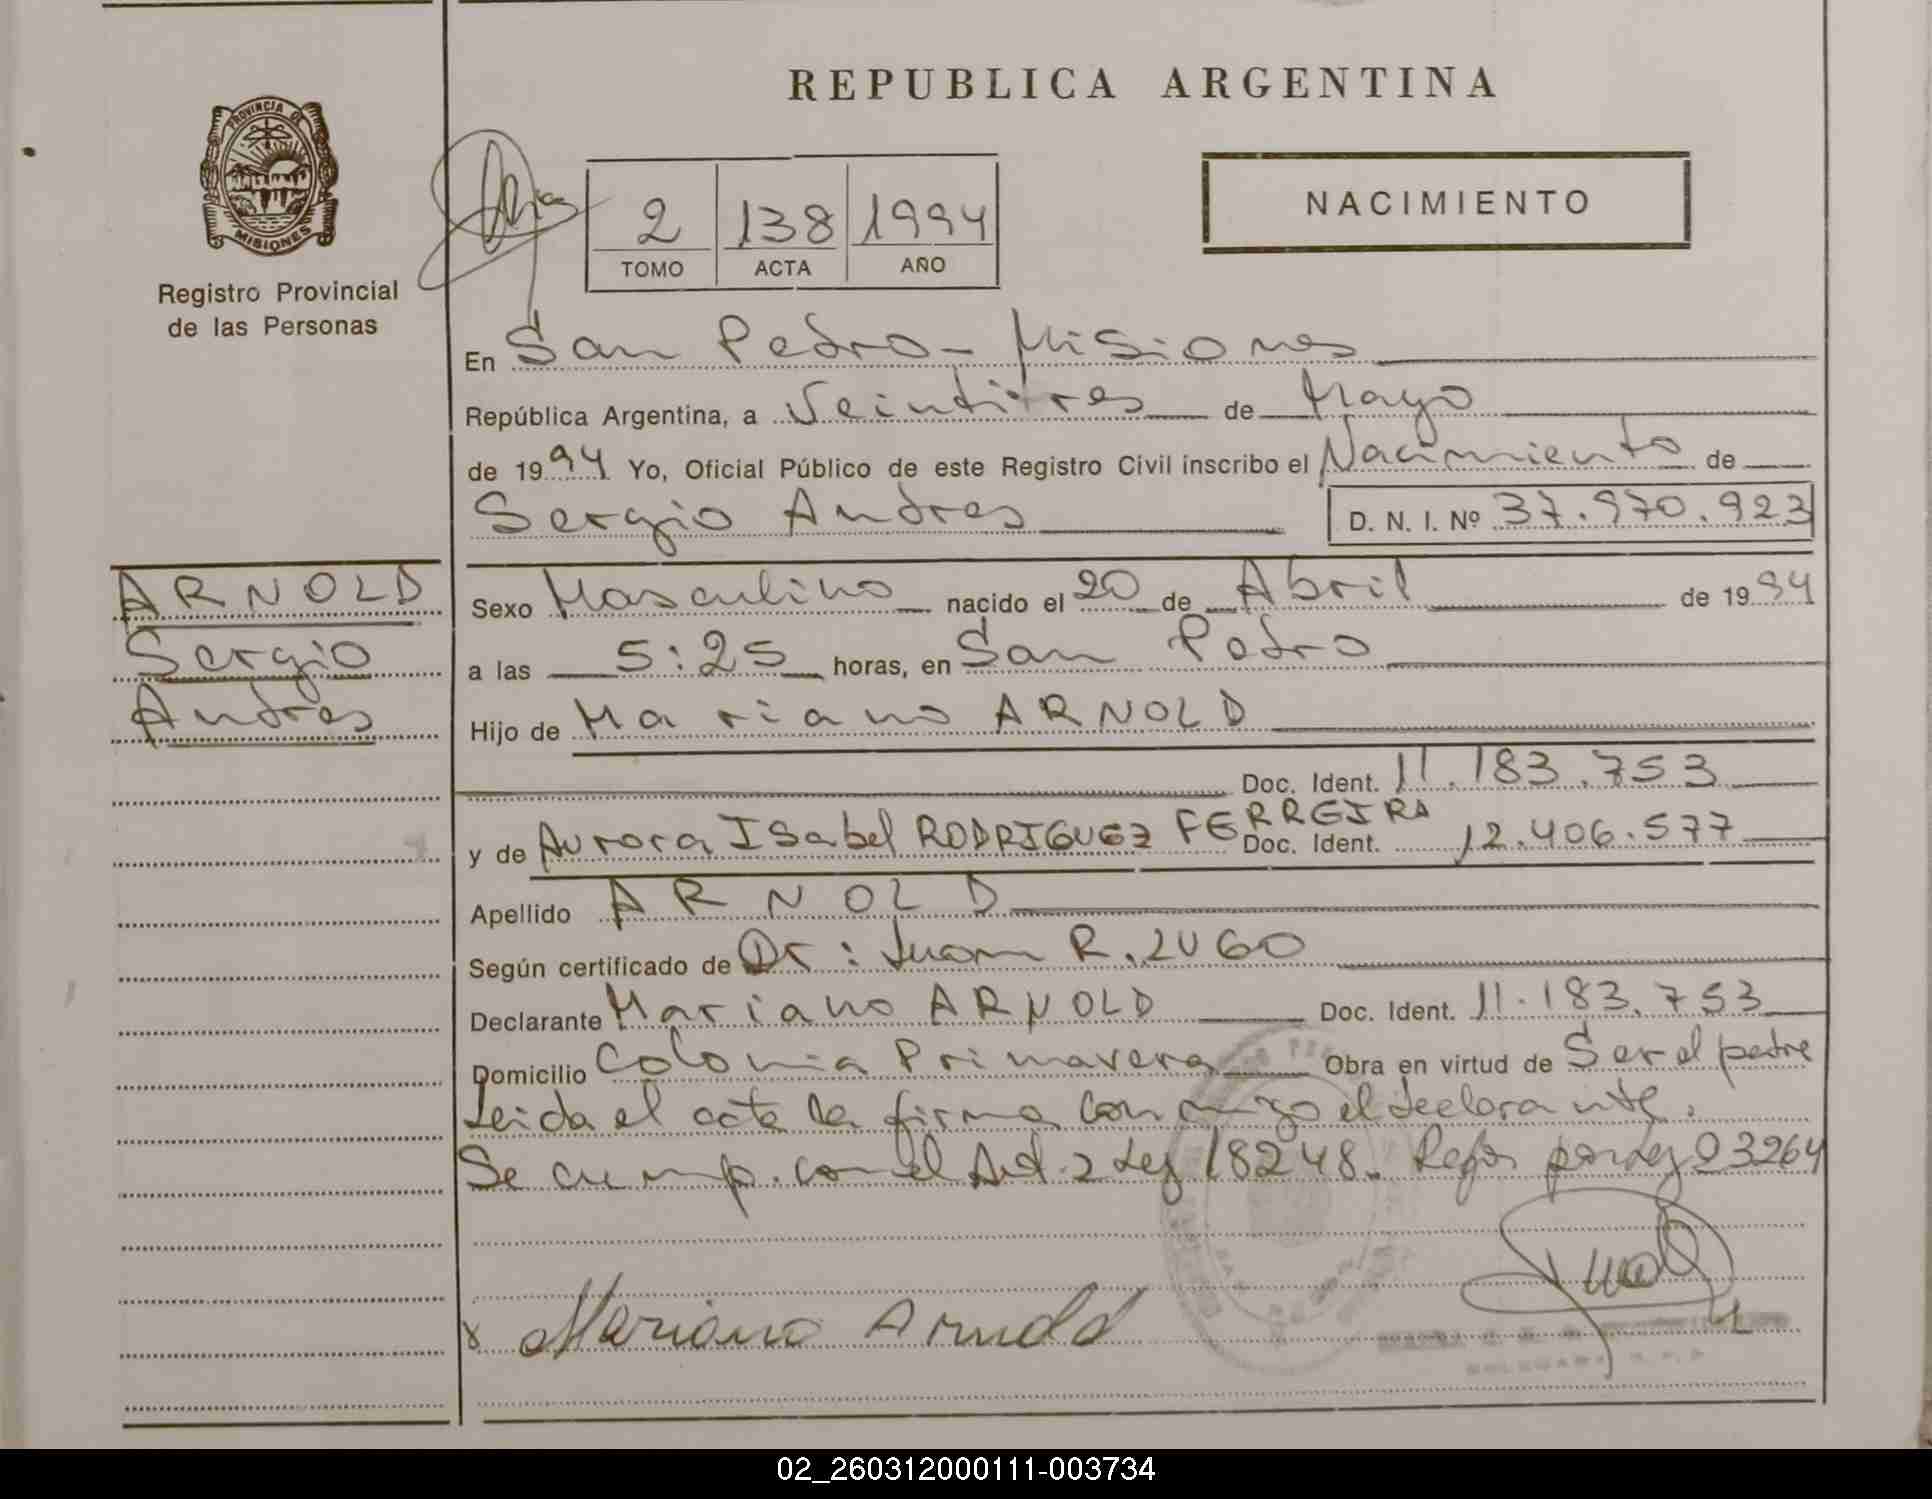 REPUBLICA ARGENTINA
PROVINCIA DE
MISIONES
Registro Provincial
de las Personas
2 138 1994
TOMO ACTA AÑO
NACIMIENTO
En San Pedro - Misiones
República Argentina, a Veintitres de Mayo
de 1994 Yo, Oficial Público de este Registro Civil inscribo el Nacimiento de
Sergio Andres D. N. I. Nº 37.970.923
ARNOLD
Sergio
Andres
Sexo Masculino nacido el 20 de Abril de 1994
a las 5:25 horas, en San Pedro
Hijo de Mariano ARNOLD
Doc. Ident. 11.183.753
y de Aurora Isabel RODRIGUEZ FERREIRA Doc. Ident. 12.406.577
Apellido ARNOLD
Según certificado de Dr: Juan R. LUGO
Declarante Mariano ARNOLD Doc. Ident. 11.183.753
Domicilio Colonia Primavera Obra en virtud de Ser el padre
Leida el acta la firma conmigo el declarante.
Se cump. con el Art. 2 Ley 18248. por Ley 23264
Mariano Arnold
02_260312000111-003734